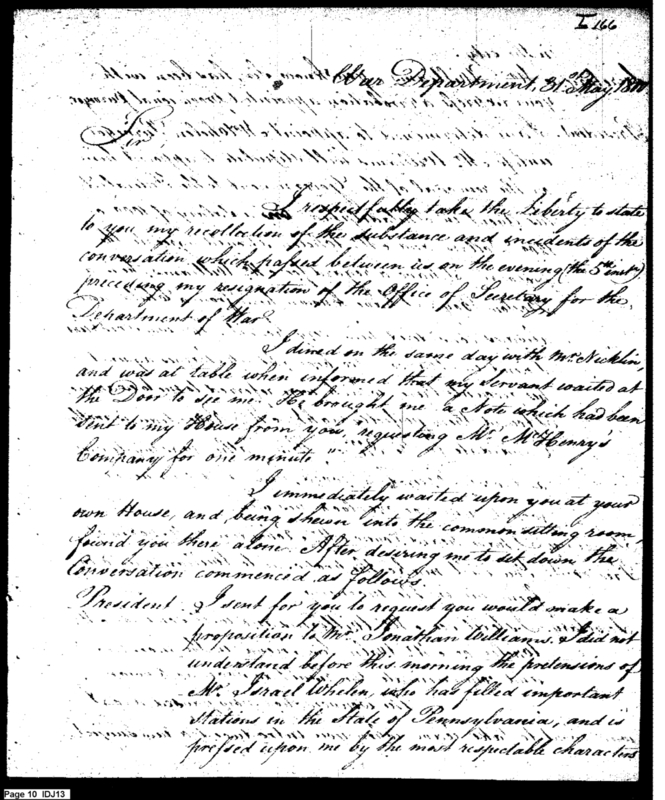 I 166
War Department, 31st May, 1800
Sir
I respectfully take the Liberty to state
to you my recollection of the substance and incidents of the
conversation which passed between us on the evening (the 5th inst.)
preceding my resignation of the Office of Secretary for the
Department of War.
I dined on the same day with Mr. Nicklin,
and was at table when informed that my servant waited at
the Door to see me. He brought me a Note which had been
sent to my House from you, "requesting Mr. McHenrys
Company for one minute."
I immediately waited upon you at your
own House, and being shewn into the common sitting room,
found you there alone. After desiring me to set down the
Conversation commenced as follows.
President I sent for you to request you would make a
proposition to Mr. Jonathan Williams. I did not
understand before this morning the pretensions of
Mr. Israel Whelen, who has filled important
stations in the State of Pennsylvania, and is
pressed upon me by the most respectable characters
Page 10 IDJ13